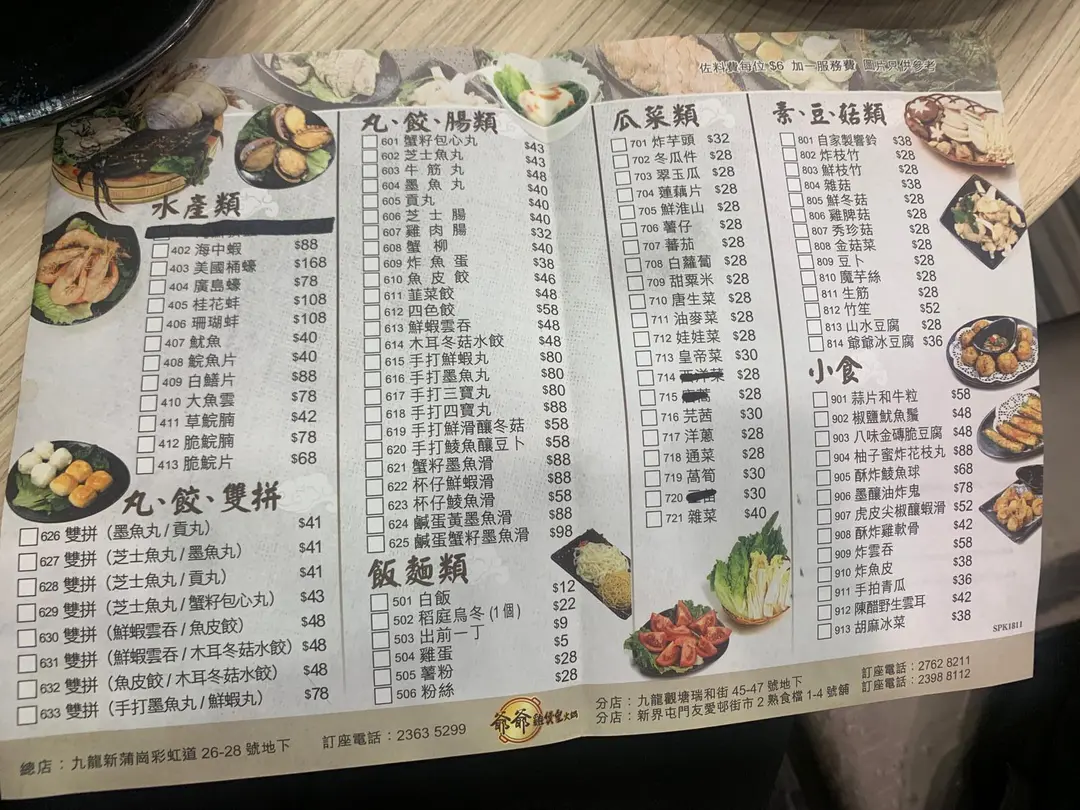 佐料費每位 $6 加一服務費 圖片只供參考
水產類
402 海中蝦 $88
403 美國桶蠔 $168
404 廣島蠔 $78
405 桂花蚌 $108
406 珊瑚蚌 $108
407 魷魚 $40
408 鯇魚片 $40
409 白鱔片 $88
410 大魚雲 $78
411 草鯇腩 $42
412 脆鯇腩 $78
413 脆鯇片 $68
丸、餃、雙拼
626 雙拼（墨魚丸 / 貢丸） $41
627 雙拼（芝士魚丸 / 墨魚丸） $41
628 雙拼（芝士魚丸 / 貢丸） $41
629 雙拼（芝士魚丸 / 蟹籽包心丸） $43
630 雙拼（鮮蝦雲吞 / 魚皮餃） $48
631 雙拼（鮮蝦雲吞 / 木耳冬菇水餃） $48
632 雙拼（魚皮餃 / 木耳冬菇水餃） $48
633 雙拼（手打墨魚丸 / 鮮蝦丸） $78
丸、餃、腸類
601 蟹籽包心丸 $43
602 芝士魚丸 $43
603 牛筋丸 $48
604 墨魚丸 $40
605 貢丸 $40
606 芝士腸 $40
607 雞肉腸 $32
608 蟹柳 $40
609 炸魚蛋 $38
610 魚皮餃 $46
611 韮菜餃 $48
612 四色餃 $58
613 鮮蝦雲吞 $48
614 木耳冬菇水餃 $48
615 手打鮮蝦丸 $80
616 手打墨魚丸 $80
617 手打三寶丸 $80
618 手打四寶丸 $88
619 手打鮮滑釀冬菇 $58
620 手打鯪魚釀豆卜 $58
621 蟹籽墨魚滑 $88
622 杯仔鮮蝦滑 $88
623 杯仔鯪魚滑 $58
624 鹹蛋黃墨魚滑 $88
625 鹹蛋蟹籽墨魚滑 $98
飯麵類
501 白飯 $12
502 稻庭烏冬 (1個) $22
503 出前一丁 $9
504 雞蛋 $5
505 薯粉 $28
506 粉絲 $28
瓜菜類
701 炸芋頭 $32
702 冬瓜件 $28
703 翠玉瓜 $28
704 蓮藕片 $28
705 鮮淮山 $28
706 薯仔 $28
707 蕃茄 $28
708 白蘿蔔 $28
709 甜粟米 $28
710 唐生菜 $28
711 油麥菜 $28
712 娃娃菜 $28
713 皇帝菜 $30
714 西洋菜 $28
715 $28
716 芫茜 $30
717 洋蔥 $28
718 通菜 $28
719 萵筍 $30
720 $30
721 雜菜 $40
素、豆、菇類
801 自家製響鈴 $38
802 炸枝竹 $28
803 鮮枝竹 $28
804 雜菇 $38
805 鮮冬菇 $28
806 雞脾菇 $28
807 秀珍菇 $28
808 金菇菜 $28
809 豆卜 $28
810 魔芋絲 $28
811 生筋 $28
812 竹笙 $52
813 山水豆腐 $28
814 爺爺冰豆腐 $36
小食
901 蒜片和牛粒 $58
902 椒鹽魷魚鬚 $48
903 八味金磚脆豆腐 $48
904 柚子蜜炸花枝丸 $88
905 酥炸鯪魚球 $68
906 墨釀油炸鬼 $78
907 虎皮尖椒釀蝦滑 $52
908 酥炸雞軟骨 $42
909 炸雲吞 $58
910 炸魚皮 $38
911 手拍青瓜 $36
912 陳醋野生雲耳 $42
913 胡麻冰菜 $38
SPK1811
總店：九龍新蒲崗彩虹道 26-28 號地下 訂座電話：2363 5299
爺爺雞煲火鍋
分店：九龍觀塘瑞和街 45-47 號地下 訂座電話：2762 8211
分店：新界屯門友愛邨街市 2 熟食檔 1-4 號舖 訂座電話：2398 8112